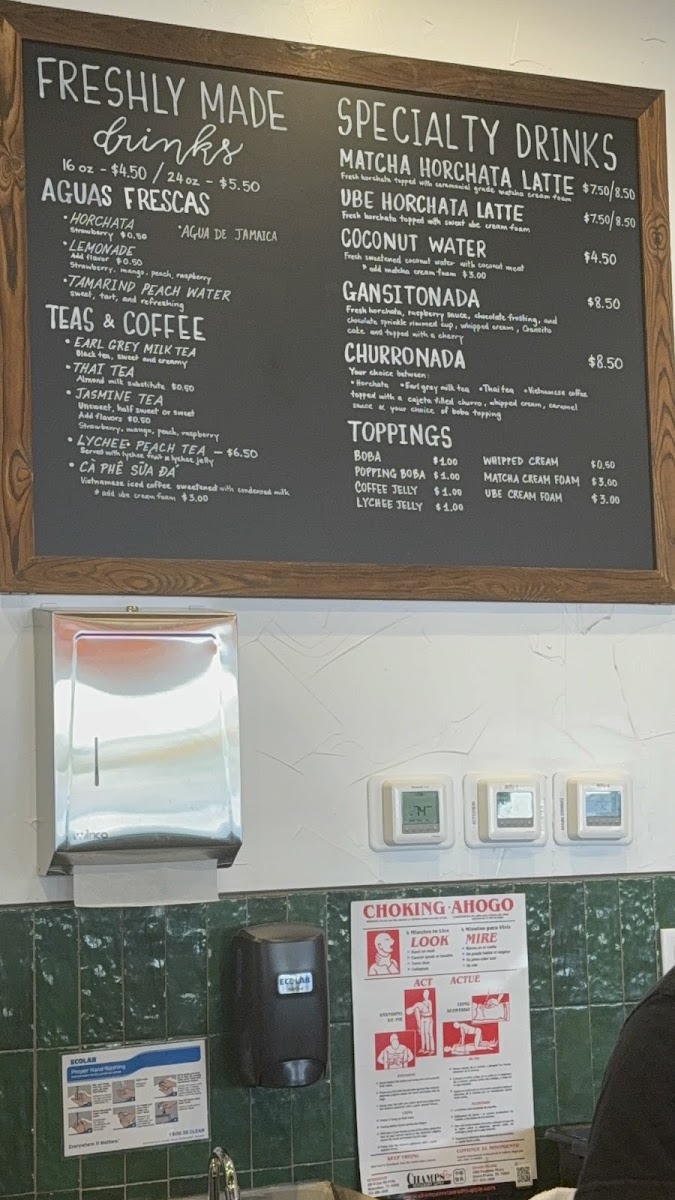 FRESHLY MADE
drinks
16 oz - $4.50 / 24 oz - $5.50
AGUAS FRESCAS
• HORCHATA
Strawberry $0.50
• AGUA DE JAMAICA
• LEMONADE
Add flavor $0.50
Strawberry, mango, peach, raspberry
• TAMARIND PEACH WATER
sweet, tart, and refreshing
TEAS & COFFEE
• EARL GREY MILK TEA
Black tea, sweet and creamy
• THAI TEA
Almond milk substitute $0.50
• JASMINE TEA
Unsweet, half sweet or sweet
Add flavors $0.50
Strawberry, mango, peach, raspberry
• LYCHEE PEACH TEA - $6.50
Served with lychee fruit & lychee jelly
• CÀ PHÊ SỮA ĐÁ
Vietnamese iced coffee sweetened with condensed milk
* add ube cream foam $3.00
SPECIALTY DRINKS
MATCHA HORCHATA LATTE $7.50/8.50
Fresh horchata topped with ceremonial grade matcha cream foam
UBE HORCHATA LATTE $7.50/8.50
Fresh horchata topped with sweet ube cream foam
COCONUT WATER $4.50
Fresh sweetened coconut water with coconut meat
* add matcha cream foam $3.00
GANSITONADA $8.50
Fresh horchata, raspberry sauce, chocolate frosting, and
chocolate sprinkle rimmed cup, whipped cream, Gansito
cake and topped with a cherry
CHURRONADA $8.50
Your choice between:
• Horchata • Earl grey milk tea • Thai tea • Vietnamese coffee
topped with a cajeta filled churro, whipped cream, caramel
sauce & your choice of boba topping
TOPPINGS
BOBA $1.00
POPPING BOBA $1.00
COFFEE JELLY $1.00
LYCHEE JELLY $1.00
WHIPPED CREAM $0.50
MATCHA CREAM FOAM $3.00
UBE CREAM FOAM $3.00
winco
74
KITCHEN
ECOLAB
CHOKING · AHOGO
LOOK
MIRE
ACT ACTUE
KEEP TRYING
CHAMPS
ECOLAB
Proper Hand Washing
Everywhere It Matters.
1 800 35 CLEAN